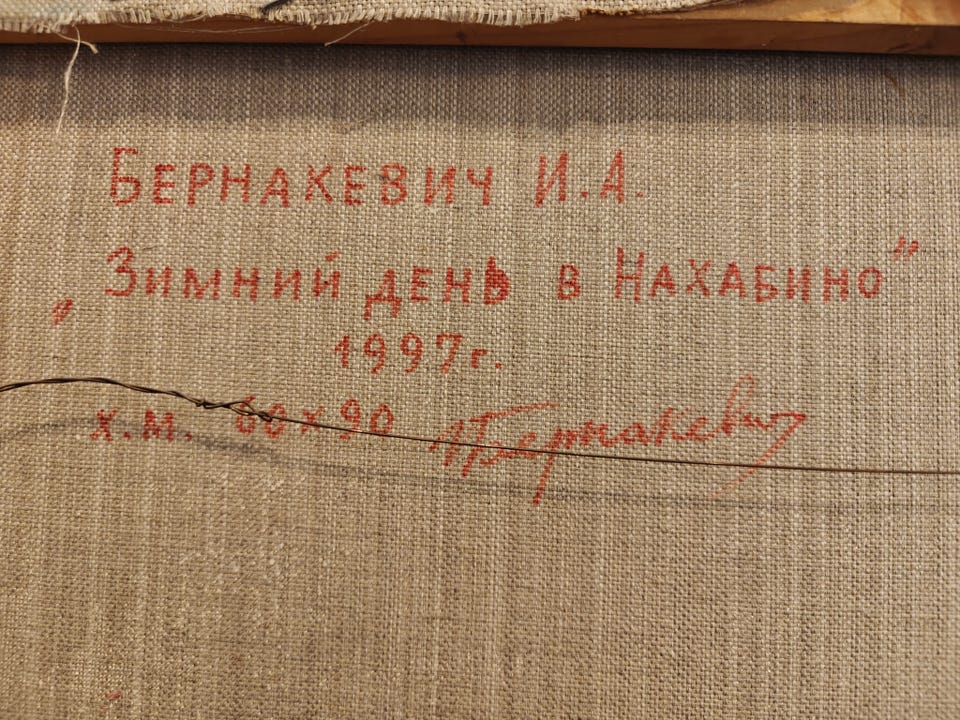 Бернакевич И.А.
„Зимний день в Нахабино"
1997г.
х.м. 60х90 ИБернакевич